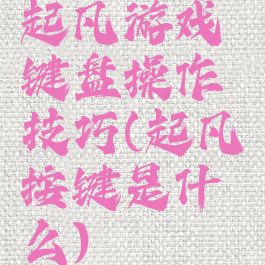 起凡游戏
键盘操作
技巧(起凡
按键是什
么)